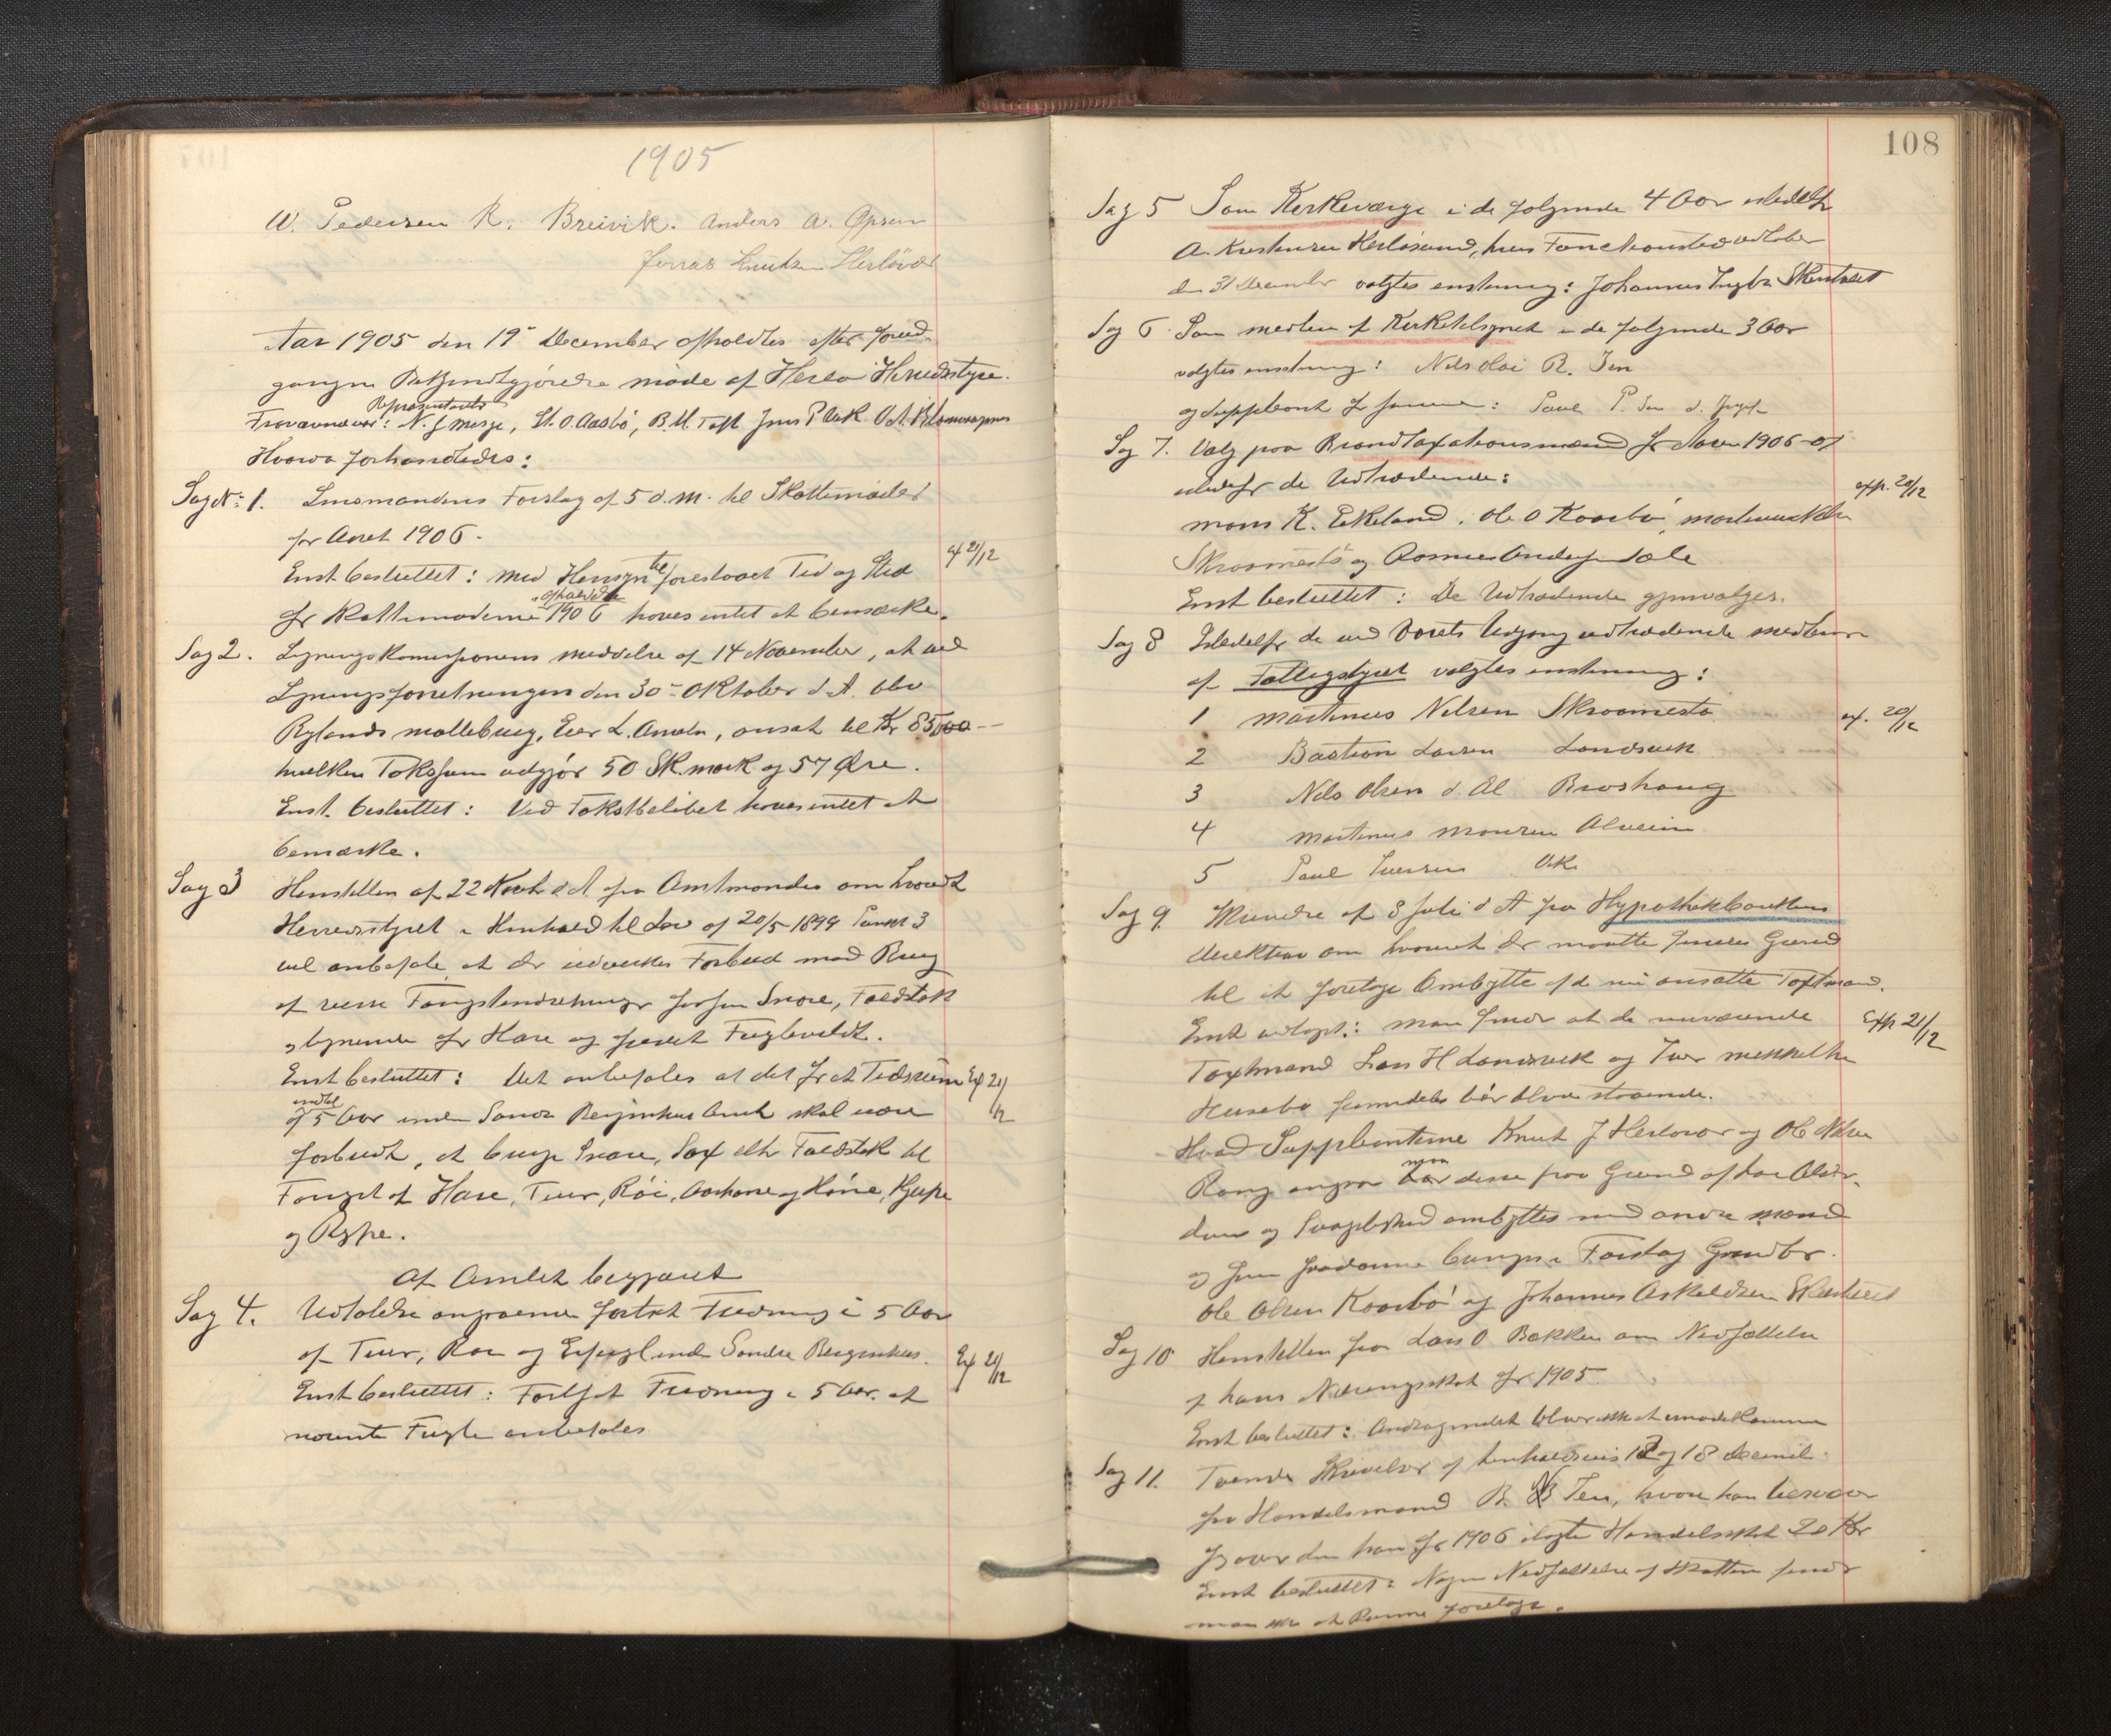 1905
W. Pedersen R. Breivik. Anders A. Opsen
Jonas Knutsen Herlövær
Aar 1905 den 19de December afholdtes efter forud-
gangen Bekjendtgjørelse møde af Herlø Herredsstyre.
Repræsentanter
Fraværende var: N. J. Merge, H. O. Aasbö, B. M. Toft Jens P Vik O A Blomvaagnes
Hvorda forhandledes:
Sag N: 1. Lensmandens Forslag af 5 d. m. til Skattemøder
for Aaret 1906.
Enst. besluttet: Med Hensyn til foreslaaet Tid og Sted ex 21/12
afholdelse
for Skattemøderne 1906 haves intet at bemærke.
Sag 2. Ligningskommissionens meddelse af 14 November, at ved
Ligningsforretningen den 30- Oktober d. A. blev
Rylands møllebrug, Eier L. Ameln, ansat til Kr 85000-
hvilken Takstsum udgjør 50 Sk.mark og 57 Øre.
Enst. besluttet: Ved Takstbeløbet haves intet at
bemærke.
Sag 3 Henstillen af 22 Novbr d A fra Amtmanden om hvorvidt
Herredsstyret i Henhold til Lov af 20/5 1899 Punkt 3
vil anbefale at der udvirkes Forbud mod Brug
af visse Fangstindretninger saasom Snare, Faldstok
og lignende for Hare og fredet Fuglevildt.
Enst besluttet: Det anbefales at det for et Tidsrum Ex 21/12
indtil
af 5 Aar inden Søndre Bergenhus Amt skal være
forbudt, at bruge Snare, Sax eller Faldstok til
Fangst af Hare, Tiur, Röi, Aarhane og Höne, Hjerpe
og Rype.
Af Amtet begjæret
Sag 4. Udtalelse angaaende fortsat Fredning i 5 Aar
af Tiur, Roe og Erfugl inden Søndre Bergenhus. Ex 21/12
Enst besluttet: Fortsat Fredning i 5 Aar. af
nævnte Fugle anbefales
108
Sag 5 Som Kirkeværge i de følgende 4 Aar istedetfor
A. Kristensen Herløsund, hvis Funktionstid udløber
den 31 December valgtes enstemmig: Johannes Skurtveit
Sag 6. Som medlem af Kirketilsynet i de følgende 3 Aar
valgtes enstemmig: Nils Olai R. Ten
og Suppleant for samme: Paul P. Ten d. Yngre
Sag 7. Valg paa Brandtaxationsmænd for Aaren 1906-07
istedetfor de Udtrædende: exp. 20/12
Mons K. Eikeland, Ole O Kaarbö, Martinus Nilsen
Skraamestö og Rasmus Anders. Sæle
Enst besluttet: De Udtrædende gjenvalges.
Sag 8 Istedetfor de ved Aarets Udgang udtrædende medlemmer
af Fattigstyret valgtes enstemmig:
1 Martinus Nilsen Skraamestø ex. 20/12
2 Bastian Larsen Landsvik
3 Nils Olsen d. Æl Broshaug
4 Martinus Monsen Alveim
5 Paul Iversen Vik
Sag 9. Skrivelse af 3 Juli d A fra Hypothekbankens
direktion om hvorvidt der maatte findes Grund
til at foretage Ombytte af de nu ansatte Taxtmænd.
Enst vedtaget: Man finder at de nuværende Exp 21/12
Taxtmænd Lars H Landsvik og Iver Mikkelsen
Husebø fremdeles bør blive staaende.
Hvad Suppleanterne Knut J Herløvær og Ole Nilsen
maa
Rong angaar bør disse paa Grund af høi Alder-
dom og Svagelighed ombyttes med andre mænd
og som saadanne bringes i Forslag Gaardbr.
Ole Olsen Kaarbö og Johannes Askeldsen Skurtveit
Sag 10 Henstillen fra Lars O Bakken om Nedsættelse
af hans Næringsskat for 1905.
Enst besluttet: Andragendet blev ikke at imødekomme
Sag 11. Tvende Skrivelser af henholdsvis 12 og 18 decemb.
fra Handelsmand B. N Ten, hvori han besvær
sig over den ham for 1906 ilagte Handelsskat 20 Kr
Enst besluttet: Nogen Nedsættelse af Skatten finder
man ikke at kunne foretage.